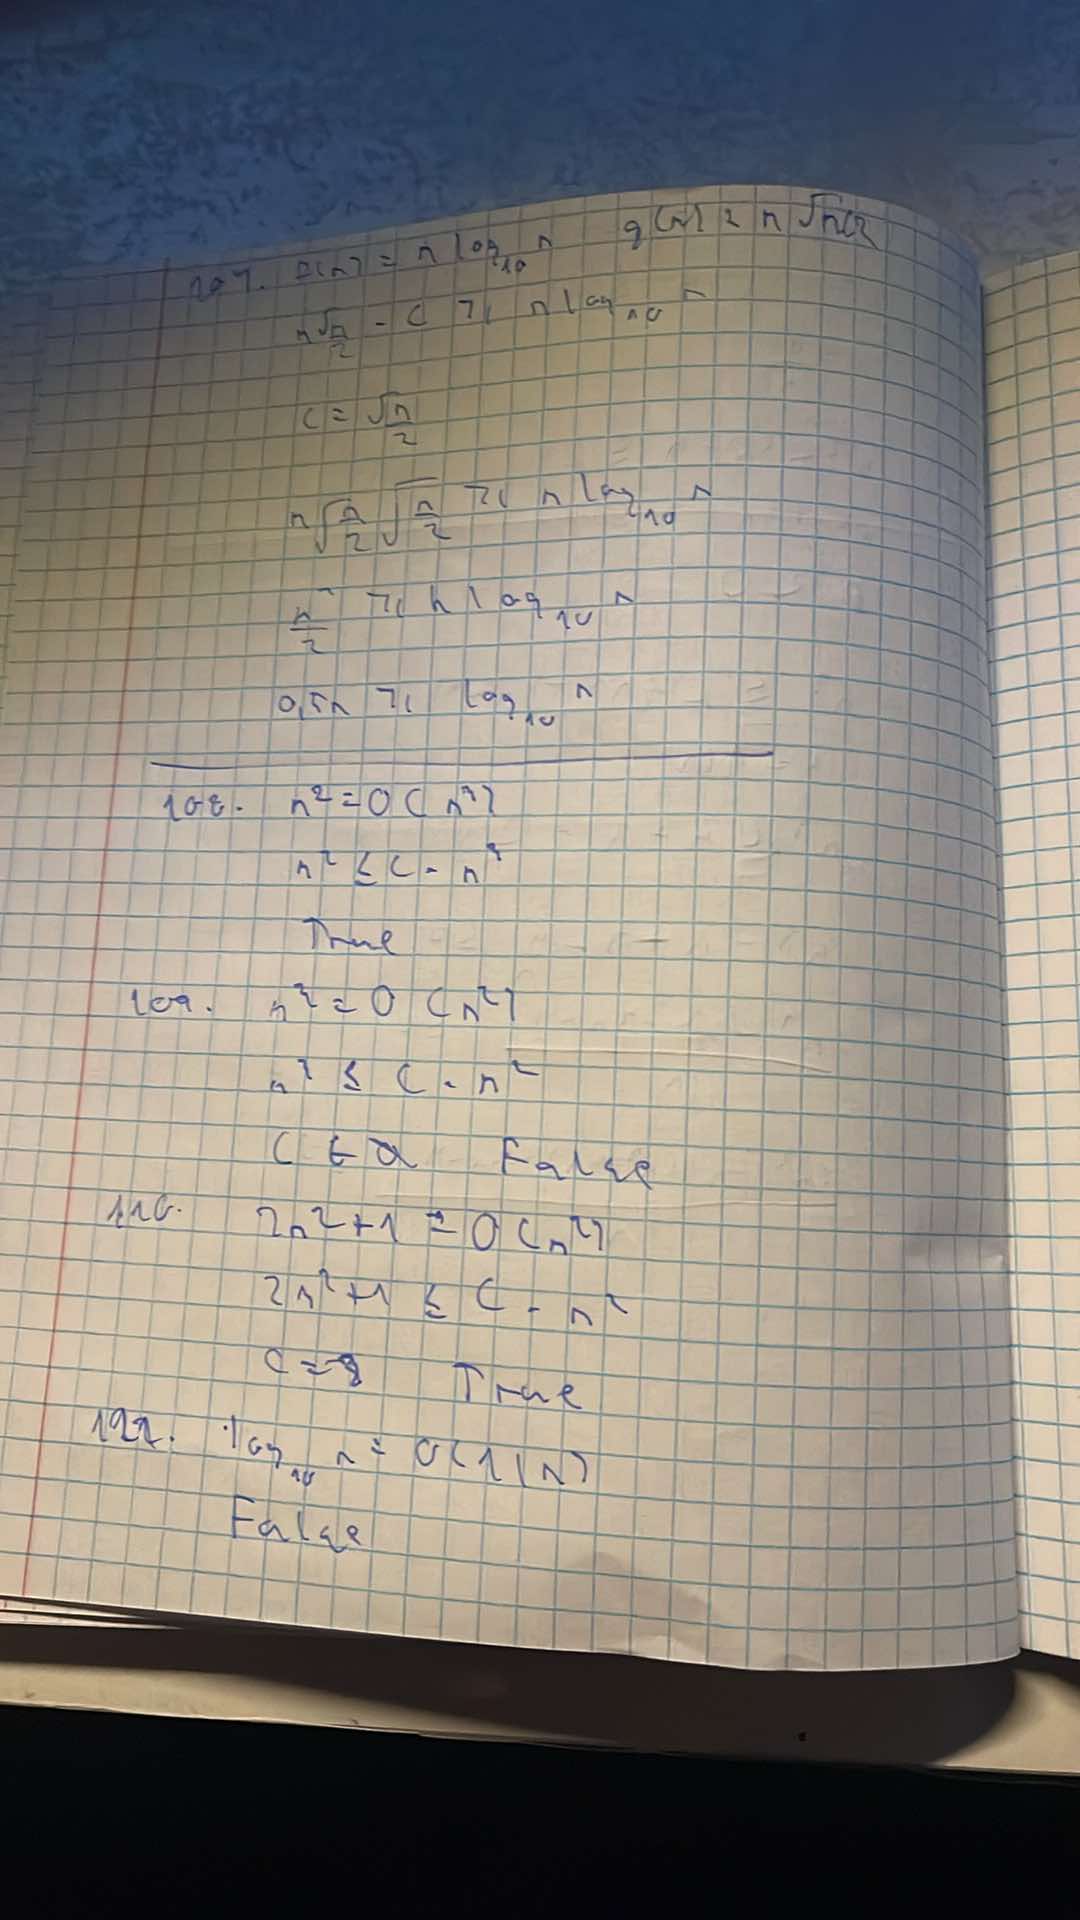 107. f(n) = n log₁₀ n g(n) = n √n/2
n √n/2 · c ≥ n log₁₀ n
c = √n/2
n √n/2 √n/2 ≥ n log₁₀ n
n²/2 ≥ n log₁₀ n
0,5n ≥ log₁₀ n
108. n² = O(n³)
n² ≤ c · n³
True
109. n³ = O(n²)
n³ ≤ c · n²
False
110. 2n²+1 = O(n²)
2n²+1 ≤ c · n²
c = 3 True
log₁₀ n = O(1/n)
False